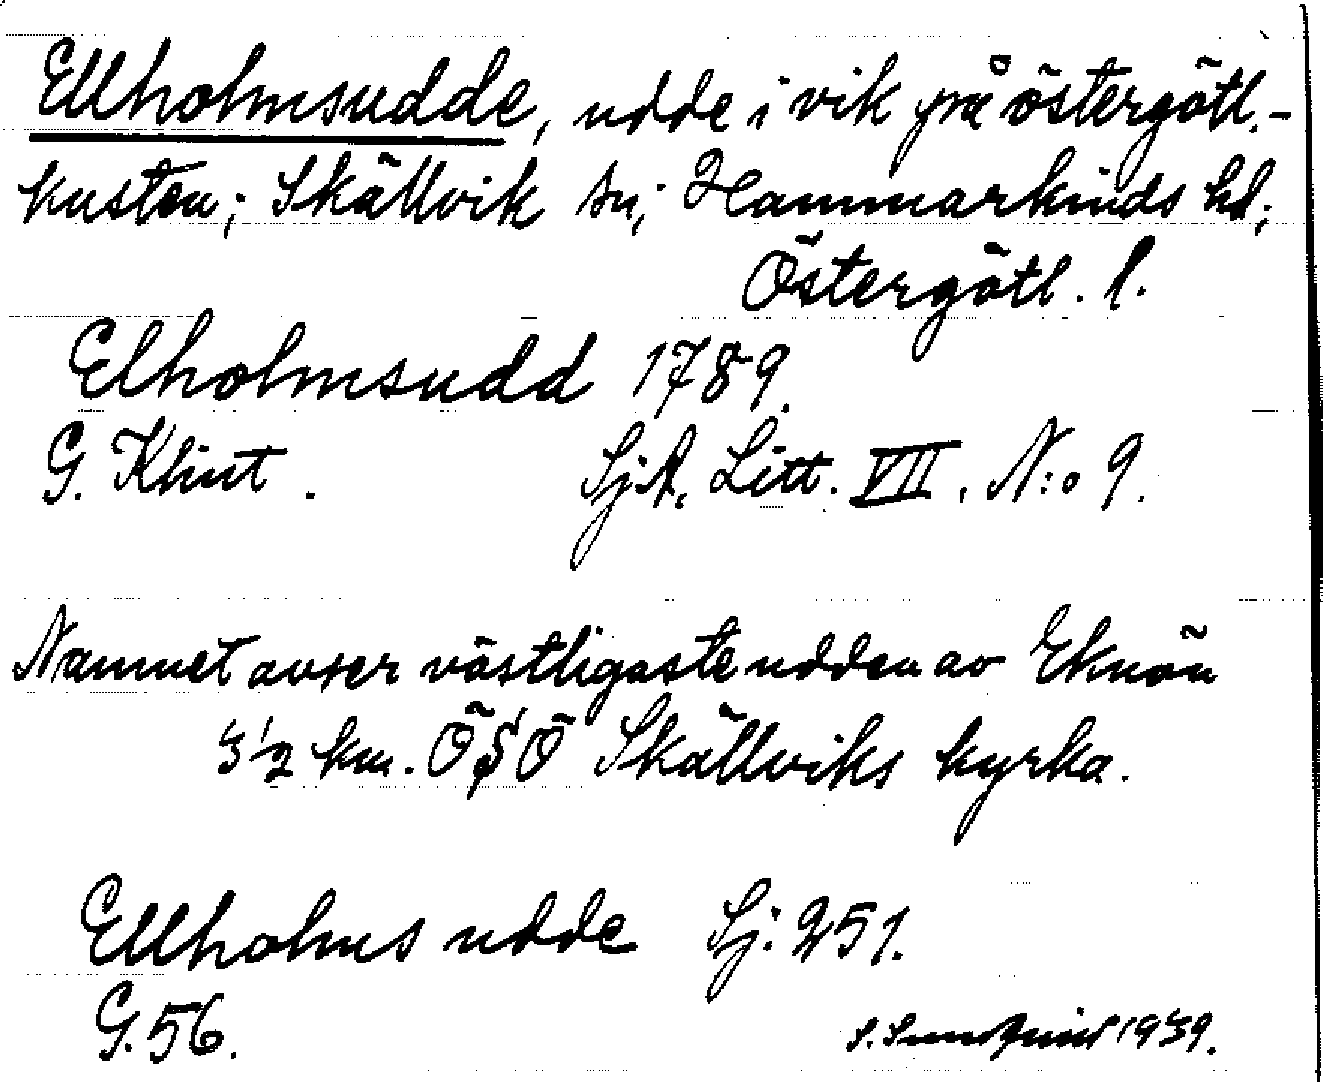 Ellholmsudde, udde i vik på östergötl.-
kusten; Skällvik sn; Hammarkinds hd;
Östergötl. l.
Elholmsudd 1789.
G. Klint. SjA, Litt. VII. N:o 9.
Namnet avser västligaste udden av Eknön
3 1/2 km. ÖSÖ Skällviks kyrka.
Ellholms udde Sj: 251.
G. 56.
S. 1939.